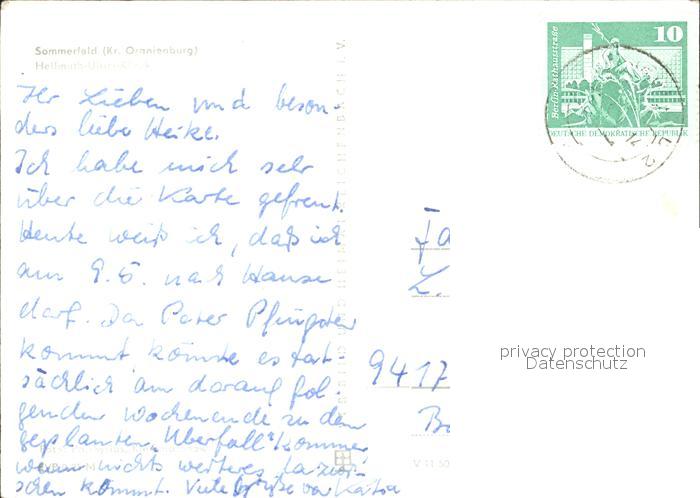 Sommerfeld (Kr. Oranienburg)
Hellmuth-Ulrici-Klinik
Ihr Lieben und beson-
ders liebe Heike.
Ich habe mich sehr
über die Karte gefreut.
Heute weiß ich, daß ich
am 9.6. nach Hause
darf. Da Peter Pfingsten
kommt könnte es tat-
sächlich am darauf fol-
genden Wochenende zu dem
geplanten "Überfall" kommen
wenn nichts weiteres dazwi-
schen kommt. Viele Grüße von Katja
Fa
Z.
9417
B
V 11 50
Berlin-Rathausstraße
10
DEUTSCHE DEMOKRATISCHE REPUBLIK
privacy protection
Datenschutz